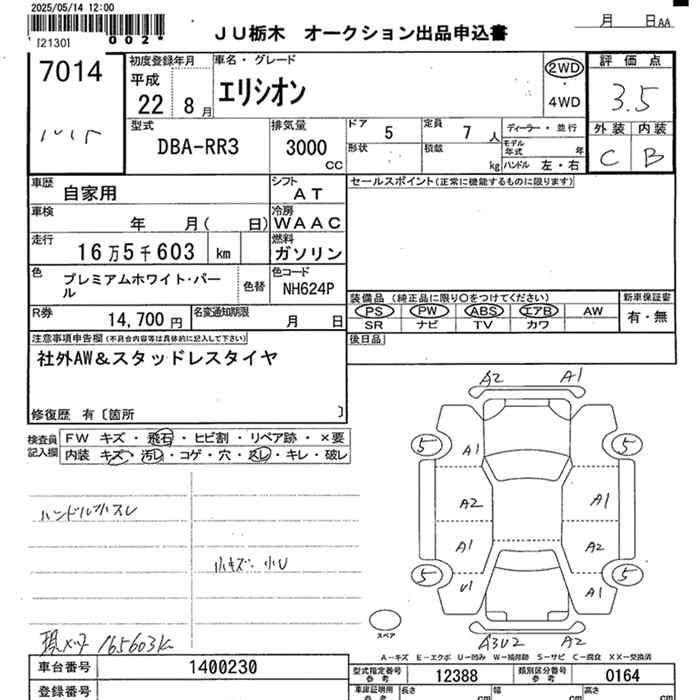 2025/05/14 12:00
[2130] 002*
JU栃木 オークション出品申込書
月 日AA
7014
初度登録年月
平成
22 8月
車名・グレード
エリシオン
2WD
・
4WD
評価点
3.5
型式
DBA-RR3
排気量
3000
CC
ドア 5
定員 7人
ディーラー・並行
形状
積載 kg
モデル年式 年
ハンドル 左・右
外装 内装
C B
車歴 自家用
シフト AT
セールスポイント(正常に機能するものに限ります)
車検 年 月( 日)
冷房 WAAC
走行 16万5千603 km
燃料 ガソリン
色 プレミアムホワイト・パール
色替
色コード NH624P
装備品 (純正品に限り○をつけてください)
新車保証書
PS PW ABS エアB AW
有・無
SR ナビ TV カワ
R券 14,700円
名変通知期限 月 日
後日品
注意事項申告欄(不具合内容等は具体的に記入して下さい)
社外AW&スタッドレスタイヤ
修復歴 有〔箇所 〕
検査員記入欄
FW キズ・飛石・ヒビ割・リペア跡・×要
内装 キズ・汚レ・コゲ・穴・スレ・キレ・破レ
ハンドル小スレ
小キズ 小U
現メータ 165603K
A2 A1
5 5
A1
A2 A1
A1 A2
5 5
U1 A1
スペア
A3U2 A2
A－キズ E－エクボ U－凹み W－補修跡 S－サビ C－腐食 XX－交換済
車台番号 1400230
型式指定番号 参考 12388
類別区分番号 参考 0164
登録番号
車庫証明用 参考
長さ cm
幅 cm
高さ cm